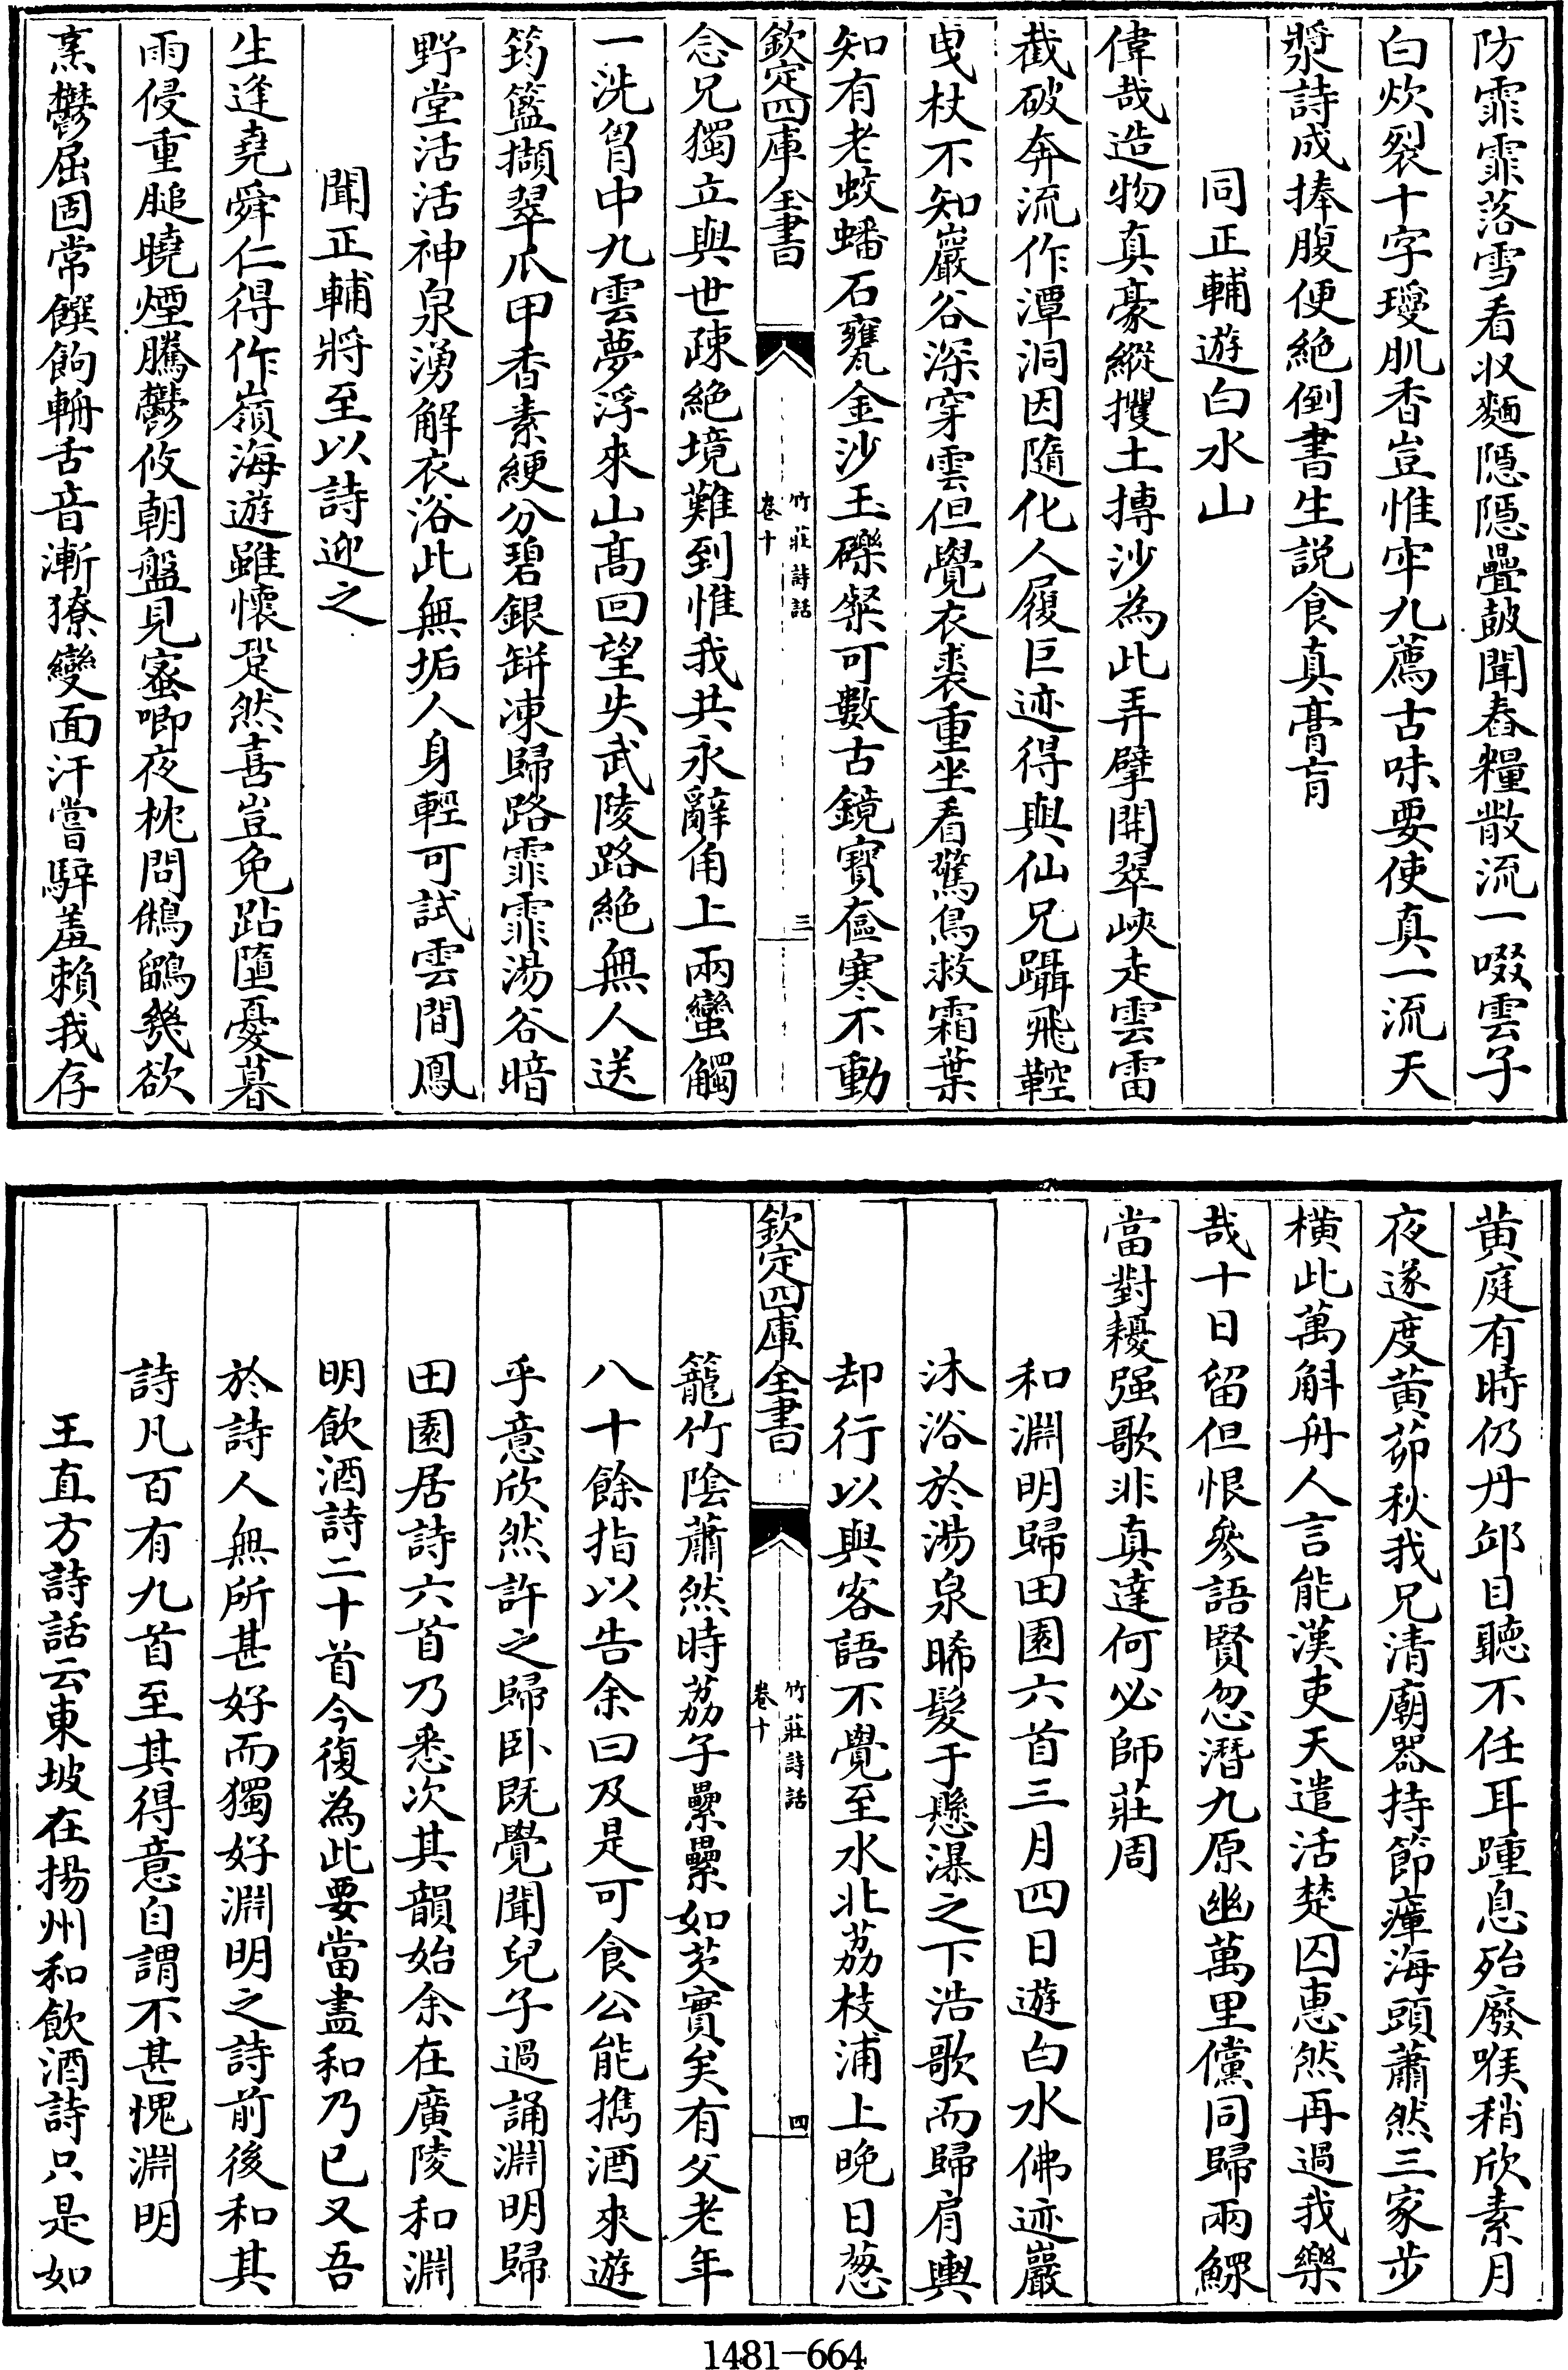 防霏霏落雪看収麵隱隱疊鼓聞舂糧散流一啜雲子
白炊裂十字瓊肌香豈惟牢九薦古味要使真一流天
漿詩成捧腹便絶倒書生説食真膏肓
同正輔遊白水山
偉哉造物真豪縱攫土摶沙為此弄擘開翠峽走雲雷
截破奔流作潭洞因隨化人履巨迹得與仙兄躡飛鞚
曳杖不知巖谷深穿雲但覺衣裘重坐看驚鳥救霜葉
知有老蛟蟠石甕金沙玉礫粲可數古鏡寳奩寒不動
欽定四庫全書
竹莊詩話
卷十
三
念兄獨立與世疎絶境難到惟我共永辭角上兩蠻觸
一洗胷中九雲夢浮來山髙回望失武陵路絶無人送
筠籃擷翠爪甲香素綆分碧銀缾凍歸路霏霏湯谷暗
野堂活活神泉湧解衣浴此無垢人身輕可試雲間鳳
聞正輔將至以詩迎之
生逢堯舜仁得作嶺海遊雖懷跫然喜豈免跕墮憂暮
雨侵重膇曉煙騰鬱攸朝盤見蜜唧夜枕問鵂鶹幾欲
烹鬱屈固常饌鉤輈舌音漸獠變面汗嘗騂羞賴我存
黄庭有時仍丹邱目聽不任耳踵息殆廢喉稍欣素月
夜遂度黄茆秋我兄清廟器持節瘴海頭蕭然三家步
横此萬斛舟人言能漢吏天遣活楚囚惠然再過我樂
哉十日留但恨參語賢忽潛九原幽萬里儻同歸兩鰥
當對耰强歌非真達何必師莊周
和淵明歸田園六首三月四日遊白水佛迹巖
沐浴於湯泉晞髮于懸瀑之下浩歌而歸肩輿
却行以與客語不覺至水北荔枝浦上晩日葱
欽定四庫全書
竹莊詩話
卷十
四
籠竹陰蕭然時荔子纍纍如芡實矣有父老年
八十餘指以告余曰及是可食公能擕酒來遊
乎意欣然許之歸卧既覺聞兒子過誦淵明歸
田園居詩六首乃悉次其韻始余在廣陵和淵
明飲酒詩二十首今復為此要當盡和乃已又吾
於詩人無所甚好而獨好淵明之詩前後和其
詩凡百有九首至其得意自謂不甚愧淵明
王直方詩話云東坡在揚州和飲酒詩只是如
1481-664